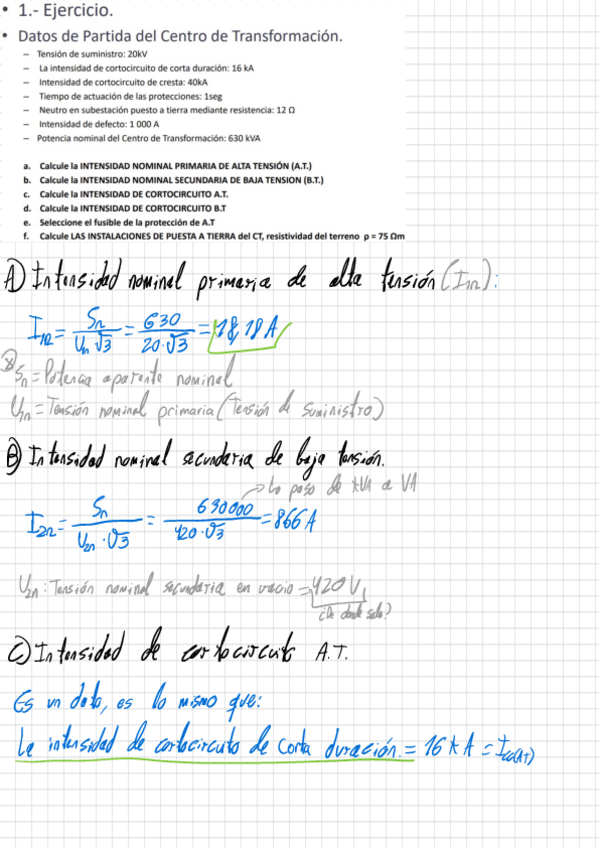 • 1.- Ejercicio.
• Datos de Partida del Centro de Transformación.
– Tensión de suministro: 20kV
– La intensidad de cortocircuito de corta duración: 16 kA
– Intensidad de cortocircuito de cresta: 40kA
– Tiempo de actuación de las protecciones: 1seg
– Neutro en subestación puesto a tierra mediante resistencia: 12 Ω
– Intensidad de defecto: 1 000 A
– Potencia nominal del Centro de Transformación: 630 kVA
a. Calcule la INTENSIDAD NOMINAL PRIMARIA DE ALTA TENSIÓN (A.T.)
b. Calcule la INTENSIDAD NOMINAL SECUNDARIA DE BAJA TENSION (B.T.)
c. Calcule la INTENSIDAD DE CORTOCIRCUITO A.T.
d. Calcule la INTENSIDAD DE CORTOCIRCUITO B.T
e. Seleccione el fusible de la protección de A.T
f. Calcule LAS INSTALACIONES DE PUESTA A TIERRA del CT, resistividad del terreno ρ = 75 Ωm
A) Intensidad nominal primaria de alta tensión (I1n):
I1n = Sn / (Un √3) = 630 / (20·√3) = 18,18 A
Sn = Potencia aparente nominal
U1n = Tensión nominal primaria (Tensión de suministro)
B) Intensidad nominal secundaria de baja tensión.
→ Lo paso de kVA a VA
I2n = Sn / (U2n · √3) = 630000 / (420·√3) = 866 A
U2n: Tensión nominal secundaria en vacio = 420 V
¿De donde sale?
C) Intensidad de cortocircuito A.T.
Es un dato, es lo mismo que:
La intensidad de cortocircuito de corta duración = 16 kA = Icc(AT)